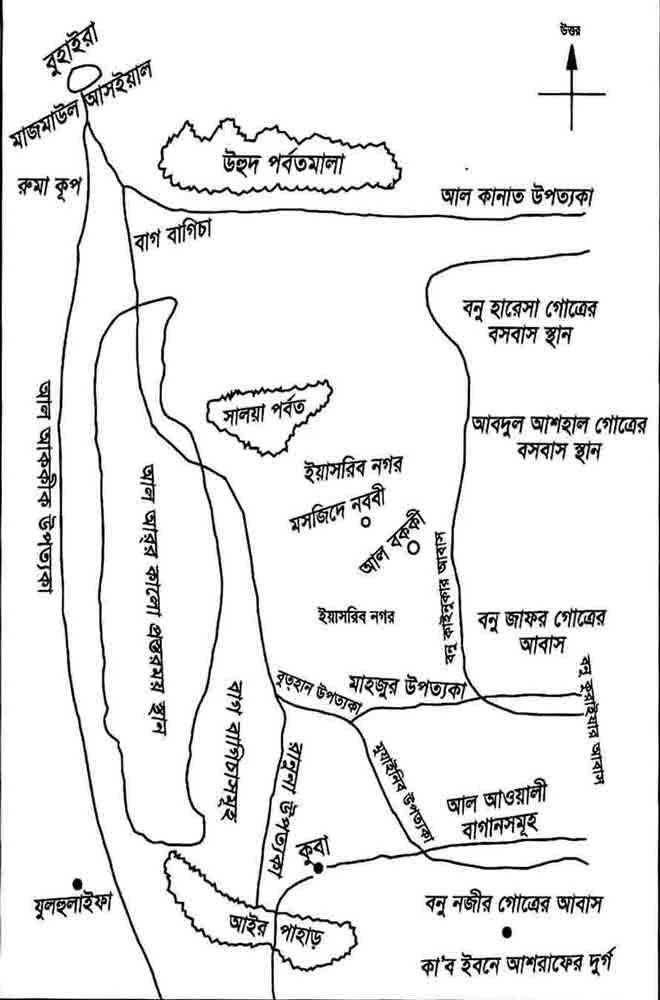 উত্তর
বুহাইরা
মাজমাউল আসইয়াল
উহুদ পর্বতমালা
রুমা কূপ
আল কানাত উপত্যকা
বাগ বাগিচা
বনু হারেসা গোত্রের
বসবাস স্থান
আল আককীক উপত্যকা
সালয়া পর্বত
আবদুল আশহাল গোত্রের
বসবাস স্থান
ইয়াসরিব নগর
মসজিদে নববী
আল বককী
আল আরর কালো প্রস্তরময় স্থান
বনু কাইনুকার আবাস
ইয়াসরিব নগর
বনু জাফর গোত্রের
আবাস
বুত্হান উপত্যকা
মাহজুর উপত্যকা
বনু কুরাইযার আবাস
বাগ বাগিচাসমূহ
রানুনা উপত্যকা
মুযাইনিব উপত্যকা
আল আওয়ালী
বাগানসমূহ
কুবা
যুলহুলাইফা
আইর পাহাড়
বনু নজীর গোত্রের আবাস
কা'ব ইবনে আশরাফের দুর্গ